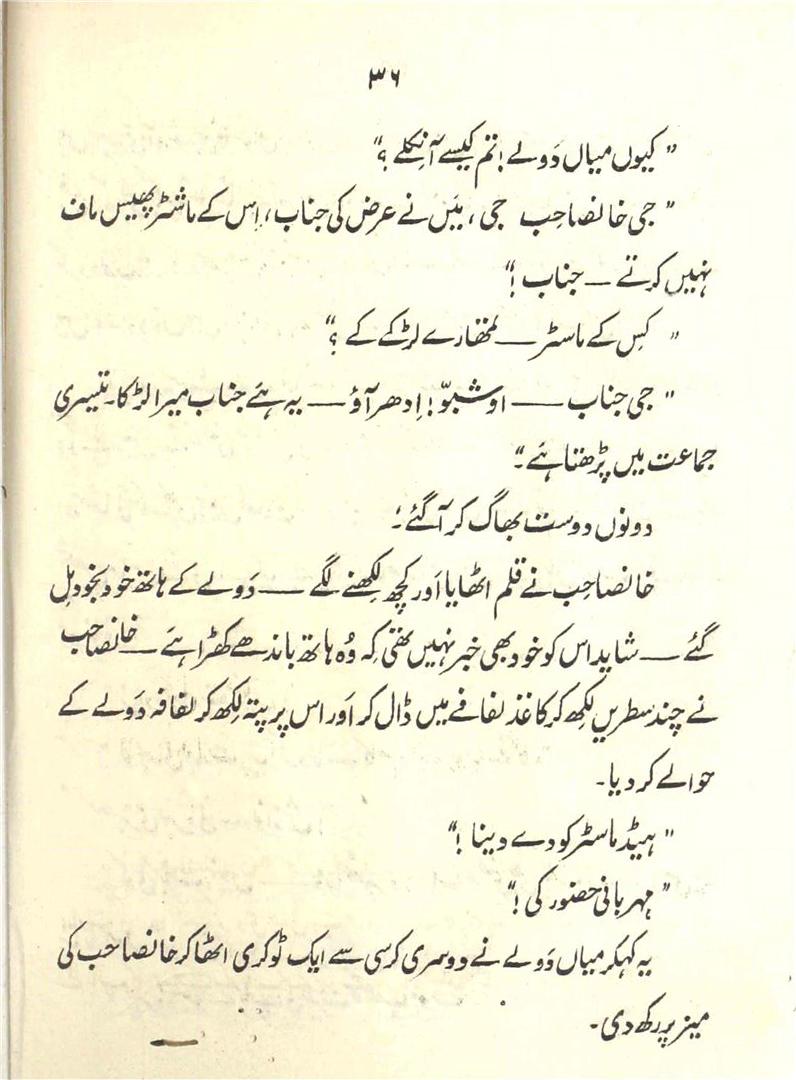 ۳۶
"کیوں میاں دَولے! تم کیسے آ نکلے؟"
"جی خانصاحِب جی، مَیں نے عرض کی جناب، اِس کے ماشٹر پھیس ماف
نہیں کرتے — جناب!"
"کِس کے ماسٹر — تمھارے لڑکے کے؟"
"جی جناب — او شبّو! اِدھر آؤ — یہ ہَے جناب میرا لڑکا۔ تیسری
جماعت میں پڑھتا ہَے۔"
دونوں دوست بھاگ کر آ گئے۔
خانصاحِب نے قلم اٹھایا اَور کچھ لِکھنے لگے — دَولے کے ہاتھ خود بخود مِل
گئے — شاید اس کو خود بھی خبر نہیں تھی کہ وُہ ہاتھ باندھے کھڑا ہَے — خانصاحب
نے چند سطریں لکھ کر کاغذ لفافے میں ڈال کر اَور اس پر پتہ لِکھ کر لفافہ دَولے کے
حوالے کر دیا۔
"ہیڈ ماسٹر کو دے دینا!"
"مہربانی حضور کی!"
یہ کہکر میاں دَولے نے دوسری کرسی سے ایک ٹوکری اٹھا کر خانصاحب کی
میز پر رکھ دی۔